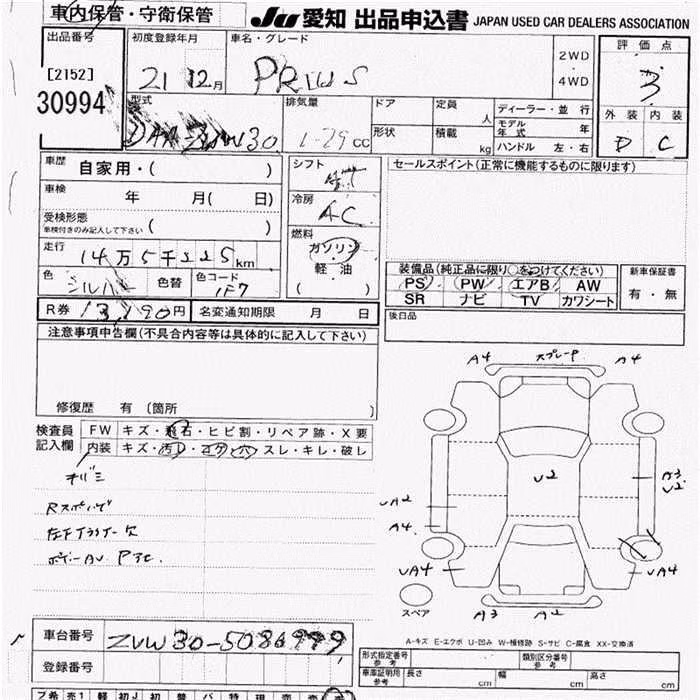 車内保管・守衛保管
JU 愛知 出品申込書 JAPAN USED CAR DEALERS ASSOCIATION
出品番号
[2152]
30994
初度登録年月
21 12月
車名・グレード
PRIUS
2WD
4WD
評価点
3
外装 内装
D C
型式
DAA-ZVW30
排気量
1.79 CC
ドア
定員 人
形状
積載 kg
ディーラー・並行
モデル年式 年
ハンドル 左・右
車歴 自家用・( )
車検 年 月( 日)
受検形態
車検付きのみ記入して下さい ( )
走行 14万5千225km
色 シルバー 色替
色コード 1F7
シフト
冷房 AC
燃料
ガソリン
軽油
( )
セールスポイント(正常に機能するものに限ります)
装備品(純正品に限り○をつけてください)
PS PW エアB AW
SR ナビ TV カワシート
新車保証書
有・無
後日品
R券 13,190円
名変通知期限 月 日
注意事項申告欄(不具合内容等は具体的に記入して下さい)
修復歴 有 〔箇所 〕
検査員記入欄
FW キズ・飛石・ヒビ割・リペア跡・X要
内装 キズ・汚れ・コゲ・穴・スレ・キレ・破レ
A4 A4
U2
A3
U2
UA2
A4
UA4 UA4
A3 A2
スペア
A-キズ E-エクボ U-凹み W-補修跡 S-サビ C-腐食 XX-交換済
車台番号 ZVW30-5086999
登録番号
形式指定番号 参考
類別区分番号 参考
車庫証明用 参考
長さ cm
幅 cm
高さ cm